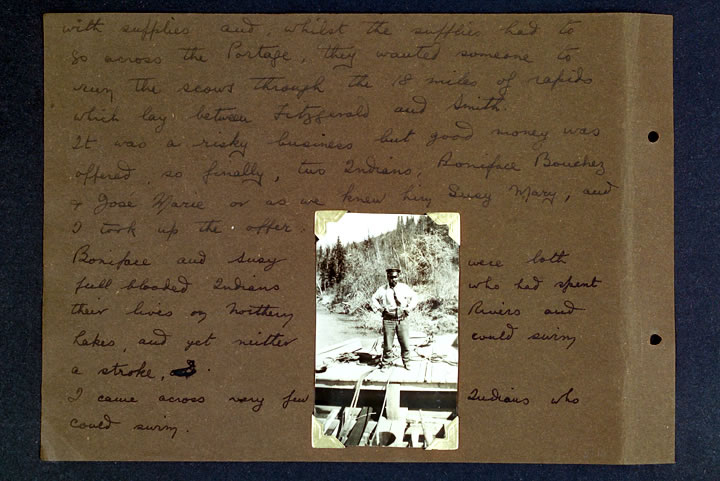 with supplies and, whilst the supplies had to
go across the Portage, they wanted someone to
run the scows through the 18 miles of rapids
which lay between Fitzgerald and Smith.
It was a risky business but good money was
offered, so finally, two Indians, Boniface Bouchez
& Jose Marie or as we knew him Susy Mary, and
I took up the offer.
Boniface and Susy were both
full blooded Indians who had spent
their lives on Northern Rivers and
Lakes, and yet neither could swim
a stroke.
I came across very few Indians who
could swim.